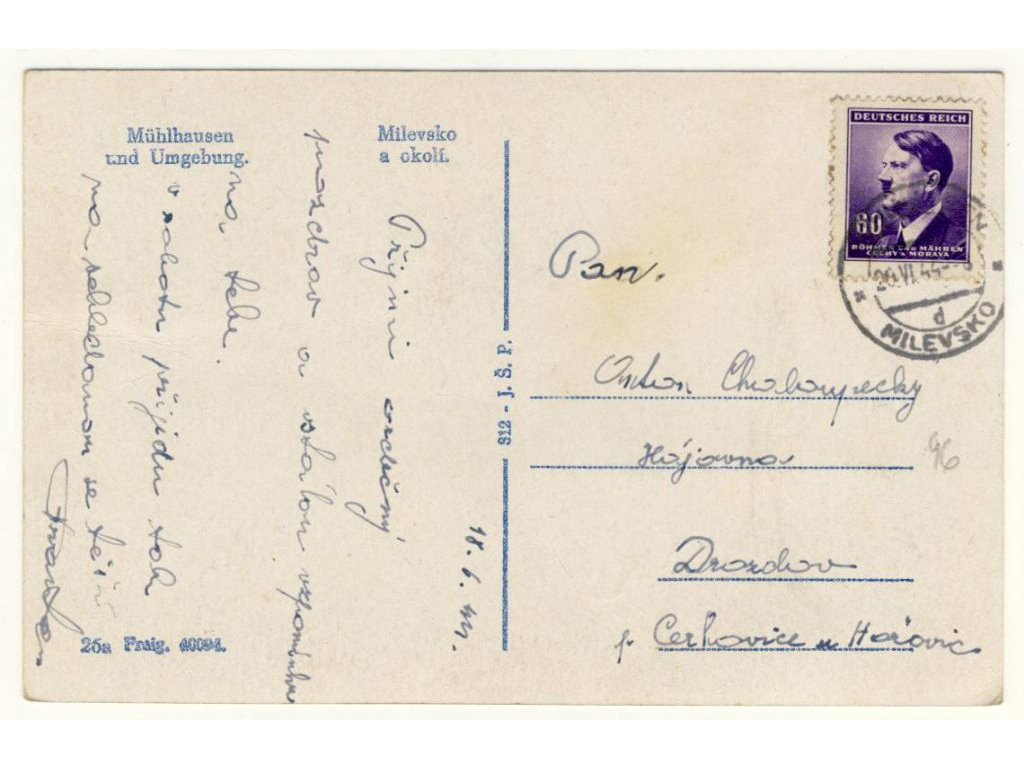 Mühlhausen
und Umgebung.
Milevsko
a okolí.
Přijmi srdečný
pozdrav a stálou vzpomínku
na tebe.
v sobotu přijedu tak
na shledanou se těší
18. 6. 44.
25a Fraig. 40094.
312 - J. Š. P.
DEUTSCHES REICH
60
BÖHMEN UND MÄHREN
ČECHY A MORAVA
20.VI.44
d
MILEVSKO
Pan.
Anton Chaloupecky
Hájovna
96
Drozdov
p. Cerhovice u Hořovic